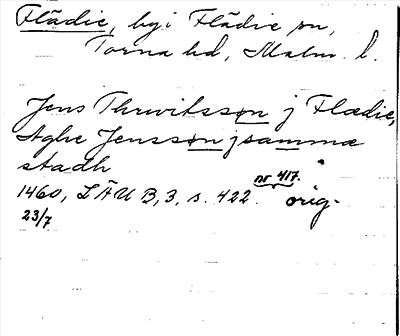 Flädie, by i Flädie sn,
Torna hd, Malm. l.
Jens Thrwilsson j Flædie,
Aghe Jensson j samma
stadh
nr 417.
1460, LÄU B, 3, s. 422. orig.
23/7